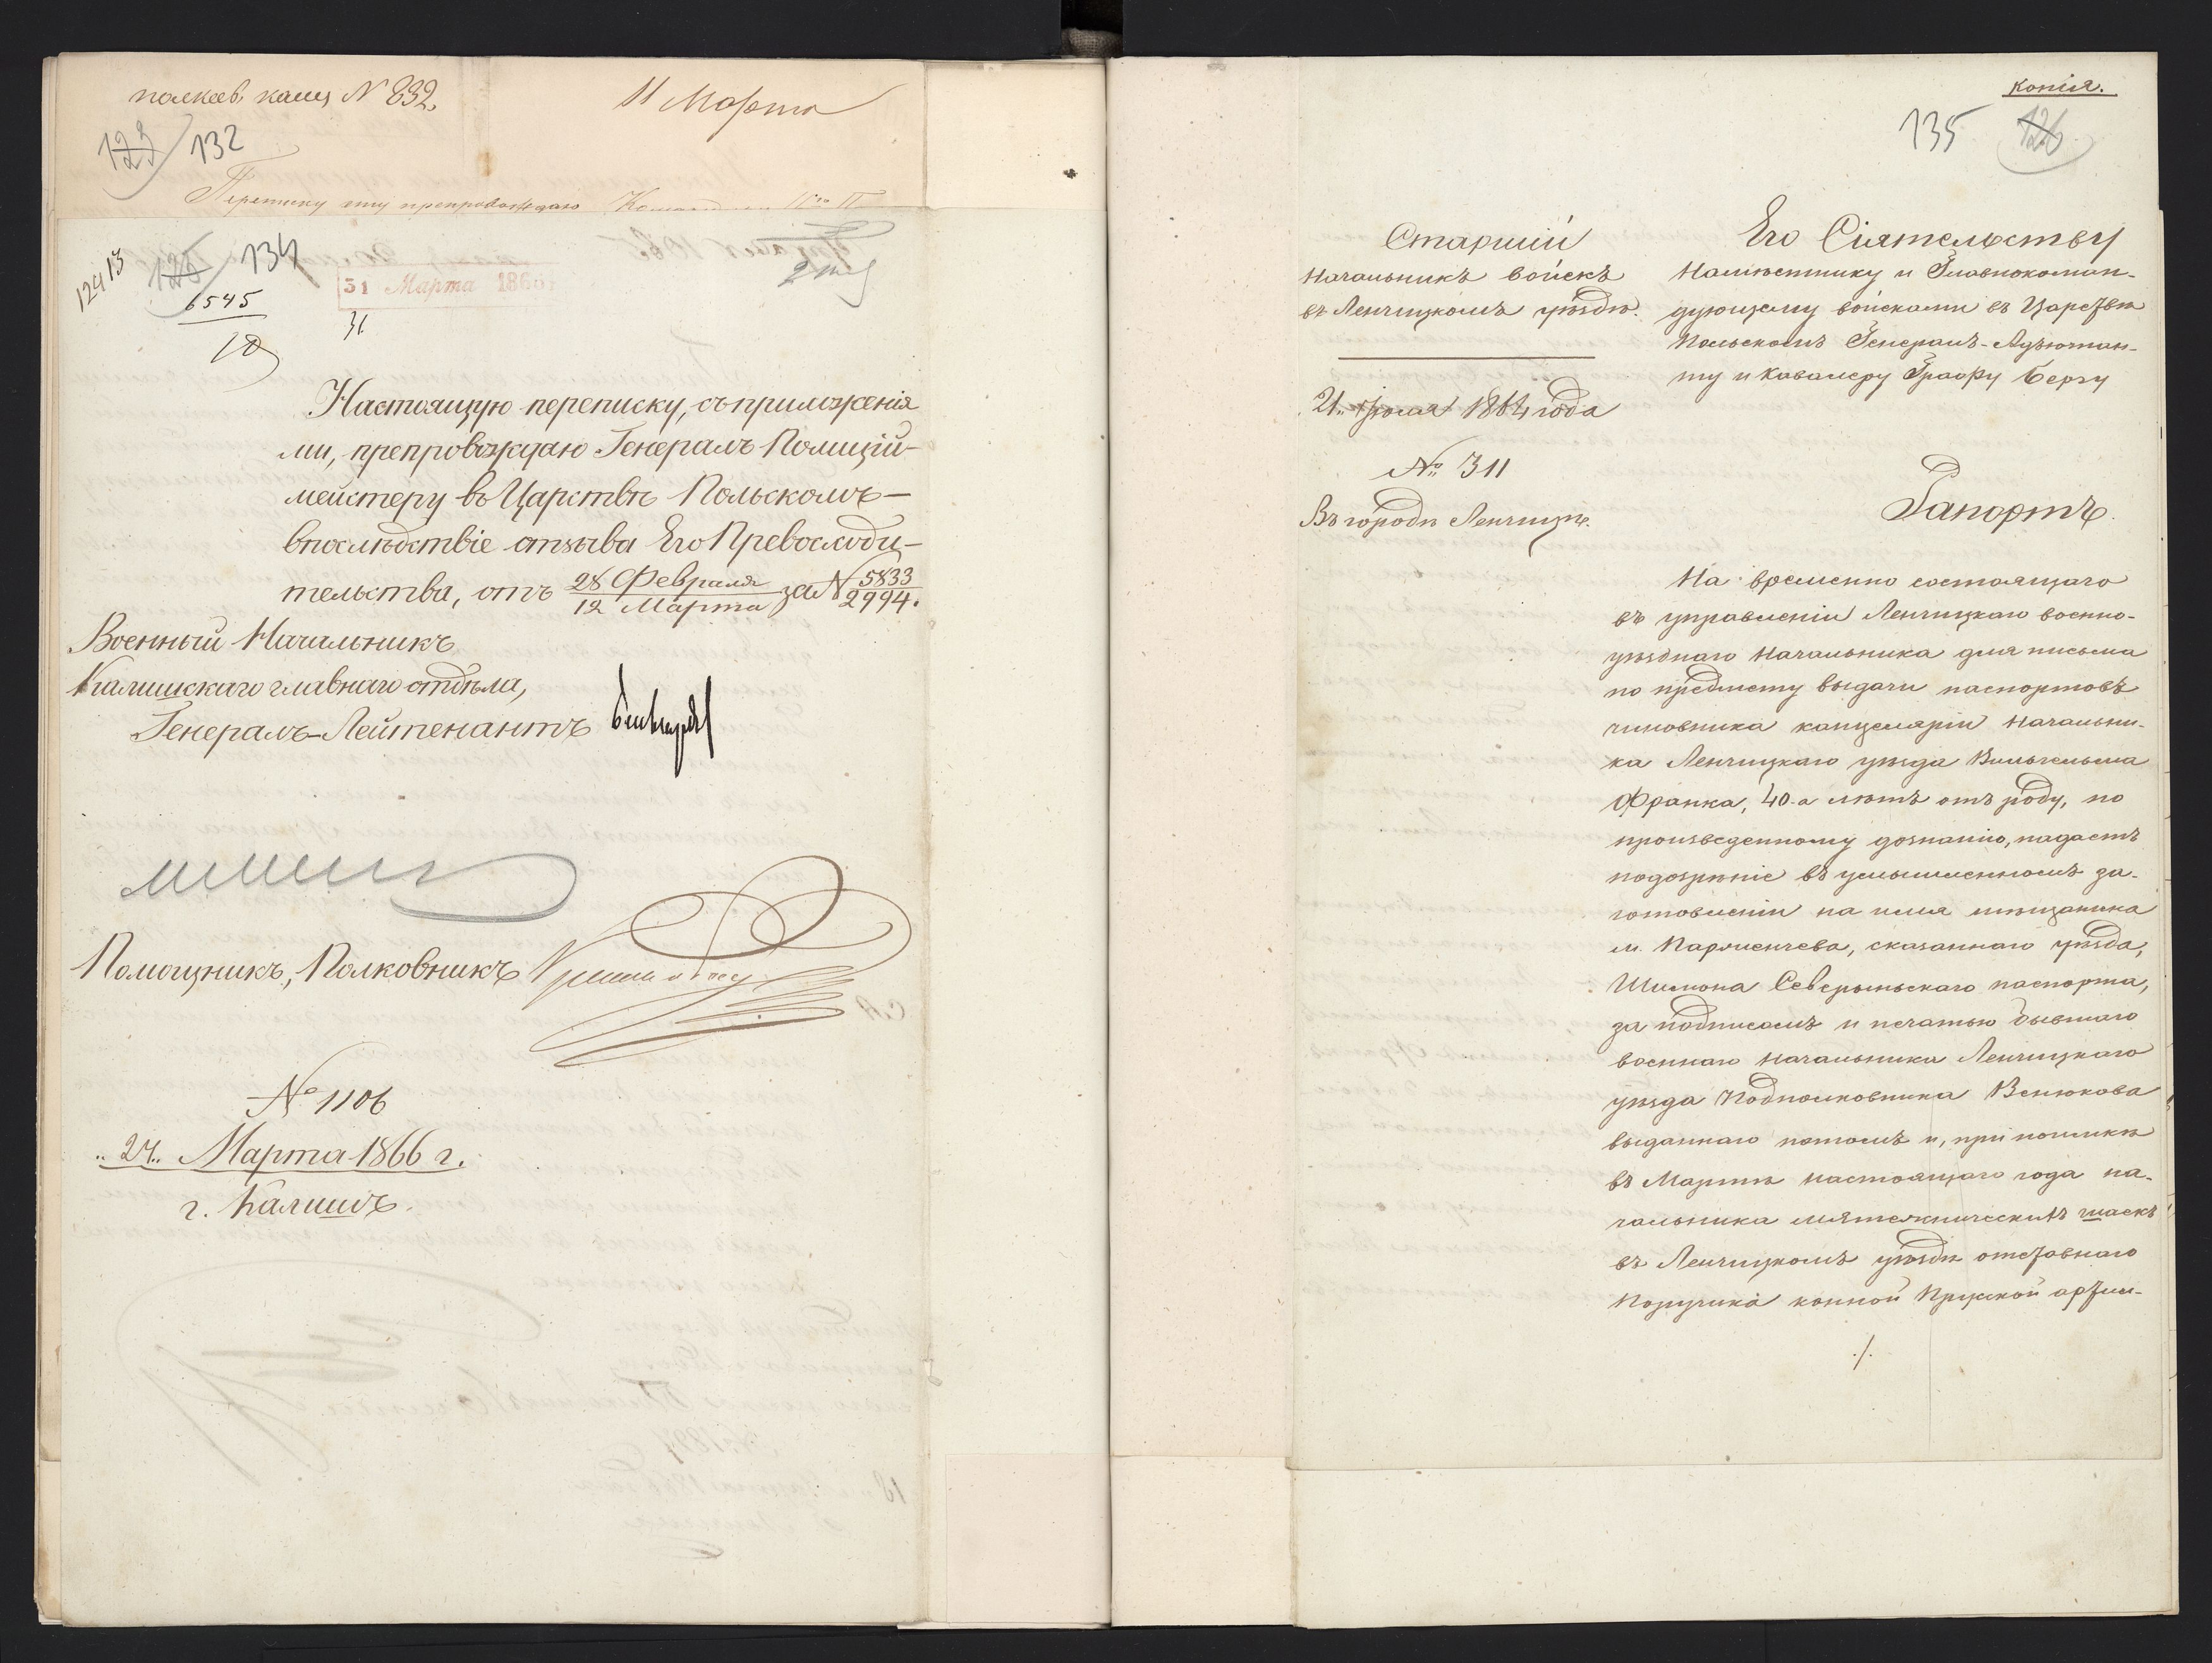 N 832
11 Марта
123 132
Переписку эту препровождаю
12413
125 134
6545
31 Марта 1866
31
Настоящую переписку, съ приложенія
ми, препровождаю Генералъ Полицій-
мейстеру въ Царствѣ Польскомъ –
впослѣдствіе отзыва Его Превосходи-
тельства, отъ 28 Февраля / 12 Марта за N 5833 / 2994.
Военный Начальникъ
Калишскаго главнаго отдѣла,
Генералъ-Лейтенантъ
Помощникъ, Полковникъ
№ 1106
„27„ Марта 1866 г.
г. Калишъ.
копія.
135 126
Старшій
Начальникъ войскъ
въ Ленчицкомъ уѣздѣ.
21„ Іюля 1864 года
№ 311
Въ городѣ Ленчицѣ.
Его Сіятельству
Намѣстнику и Главнокоман-
дующему войсками въ Царствѣ
Польскомъ Генералъ-Адъютан-
ту и Кавалеру Графу Бергу
Рапортъ.
На временно состоящаго
въ управленіи Ленчицкаго военно-
уѣзднаго Начальника для письма
по предмету выдачи паспортовъ
чиновника канцеляріи Начальни-
ка Ленчицкаго уѣзда Вильгельма
Франка, 40-а лѣтъ отъ роду, по
произведенному дознанію, падаетъ
подозрѣніе въ умышленномъ за-
готовленіи на имя мѣщанина
м. Парженчева, сказаннаго уѣзда,
Шимона Северыньскаго паспорта,
за подписомъ и печатью бывшаго
военнаго Начальника Ленчицкаго
уѣзда Подполковника Венюкова
выданнаго потомъ и, при поимкѣ
въ Мартѣ настоящаго года на-
чальника мятежническихъ шаекъ
въ Ленчицкомъ уѣздѣ отставнаго
Поручика конной Прусской артил-
./.